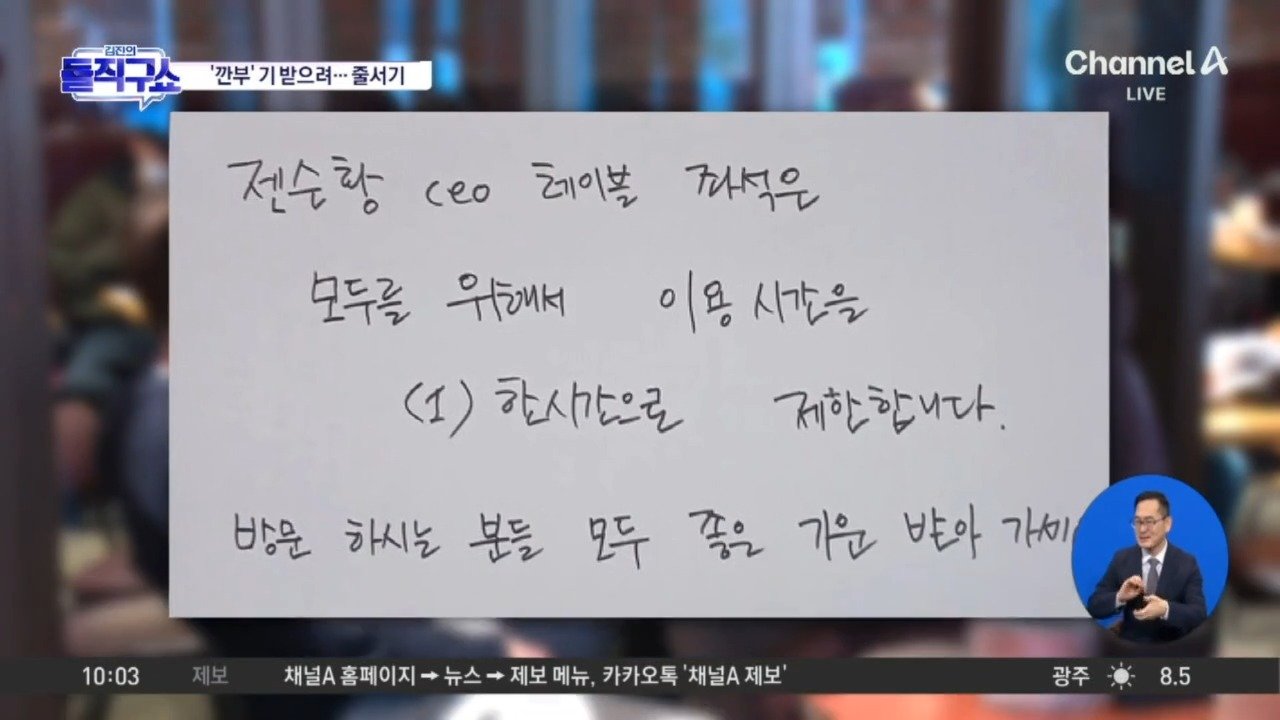 김진의
돌직구쇼
'깐부' 기 받으려… 줄서기
Channel A
LIVE
젠슨황 ceo 테이블 좌석은
모두를 위해서 이용 시간을
(1) 한시간으로 제한합니다.
방문 하시는 분들 모두 좋은 기운 받아 가세
10:03 제보 채널A 홈페이지→뉴스→제보 메뉴, 카카오톡 '채널A 제보' 광주 8.5